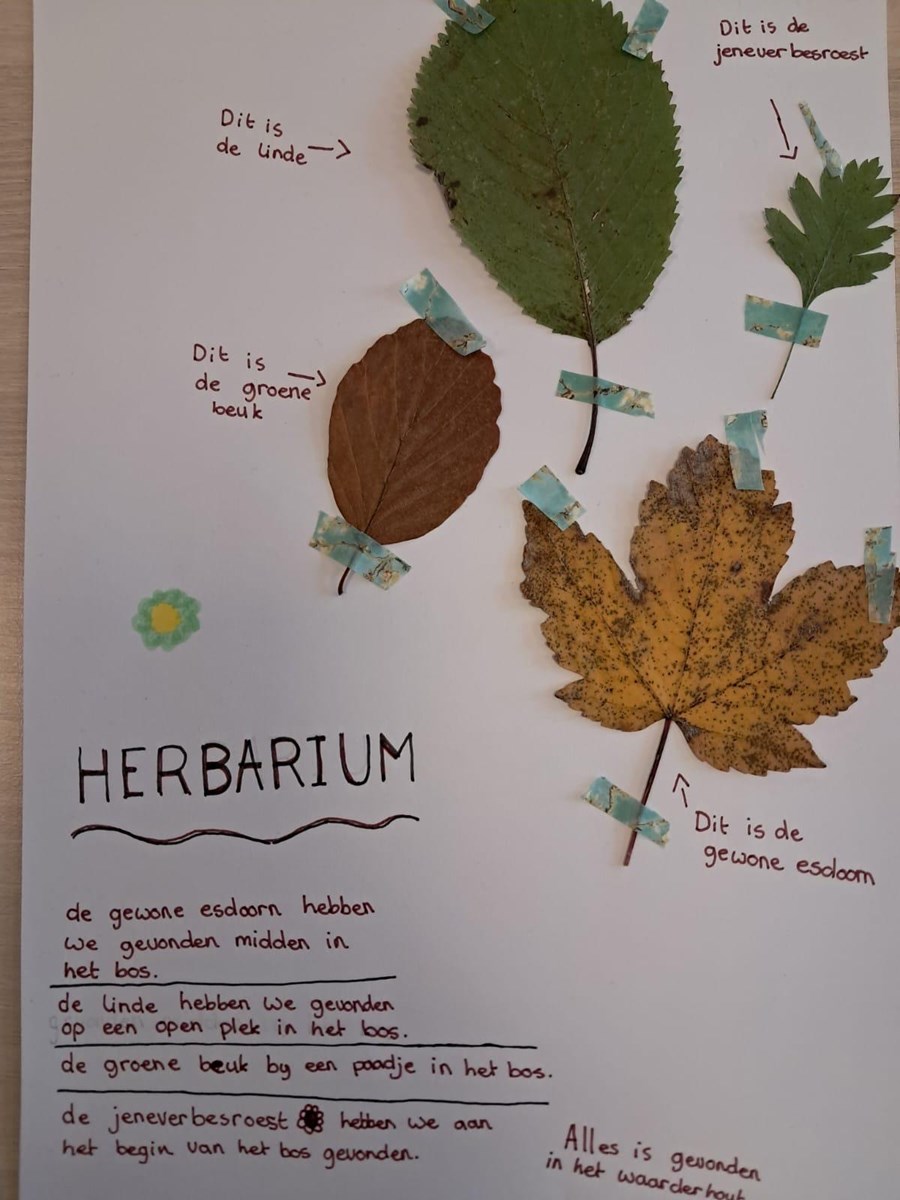 Dit is de
jeneverbesroest
Dit is
de linde
Dit is
de groene
beuk
HERBARIUM
Dit is de
gewone esdoorn
de gewone esdoorn hebben
we gevonden midden in
het bos.
de linde hebben we gevonden
op een open plek in het bos.
de groene beuk by een paadje in het bos.
de jeneverbesroest hebben we aan
het begin van het bos gevonden.
Alles is gevonden
in het waarderhout